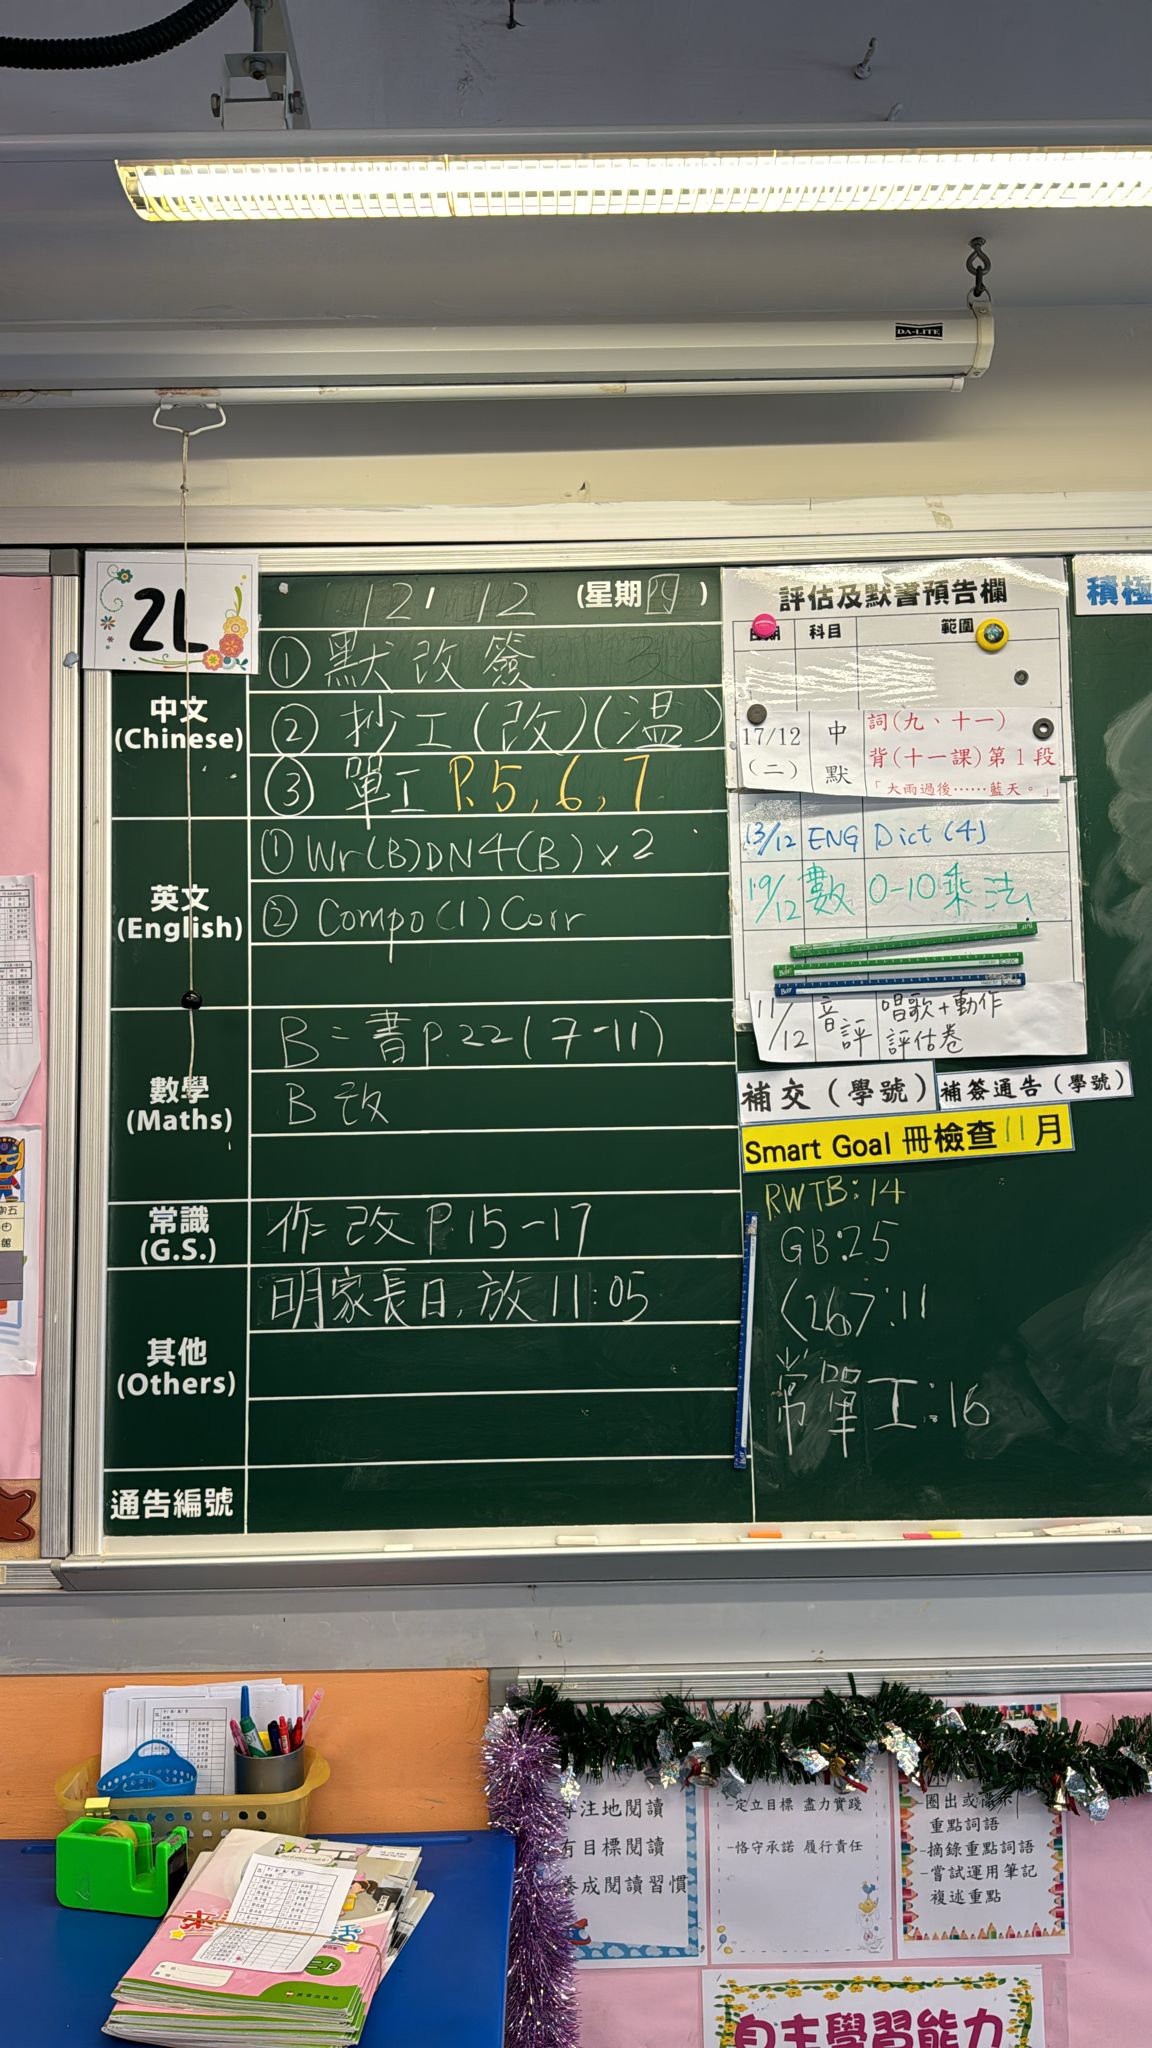 DA-LITE
2L
12/12 (星期四)
中文
(Chinese)
① 默改簽
② 抄工(改)(溫)
③ 單工 P.5,6,7
英文
(English)
① Wr(B)DN4(B)×2
② Compo(1)Corr
數學
(Maths)
B=書P.22(7-11)
B改
常識
(G.S.)
作改P.15-17
其他
(Others)
明家長日,放11:05
通告編號
評估及默書預告欄
日期 科目 範圍
17/12 (二) 中默 詞(九、十一)
背(十一課)第1段
「大雨過後……藍天。」
13/12 ENG Dict(4)
19/12 數 0-10乘法
11/12 音評 唱歌+動作
評估卷
補交(學號) 補簽通告(學號)
Smart Goal 冊檢查11月
RWTB:14
GB:25
〈26〉:11
常單工:16
積極
注地閱讀
有目標閱讀
養成閱讀習慣
-定立目標 盡力實踐
-恪守承諾 履行責任
-圈出或標示
重點詞語
-摘錄重點詞語
-嘗試運用筆記
複述重點
自主學習能力
二上